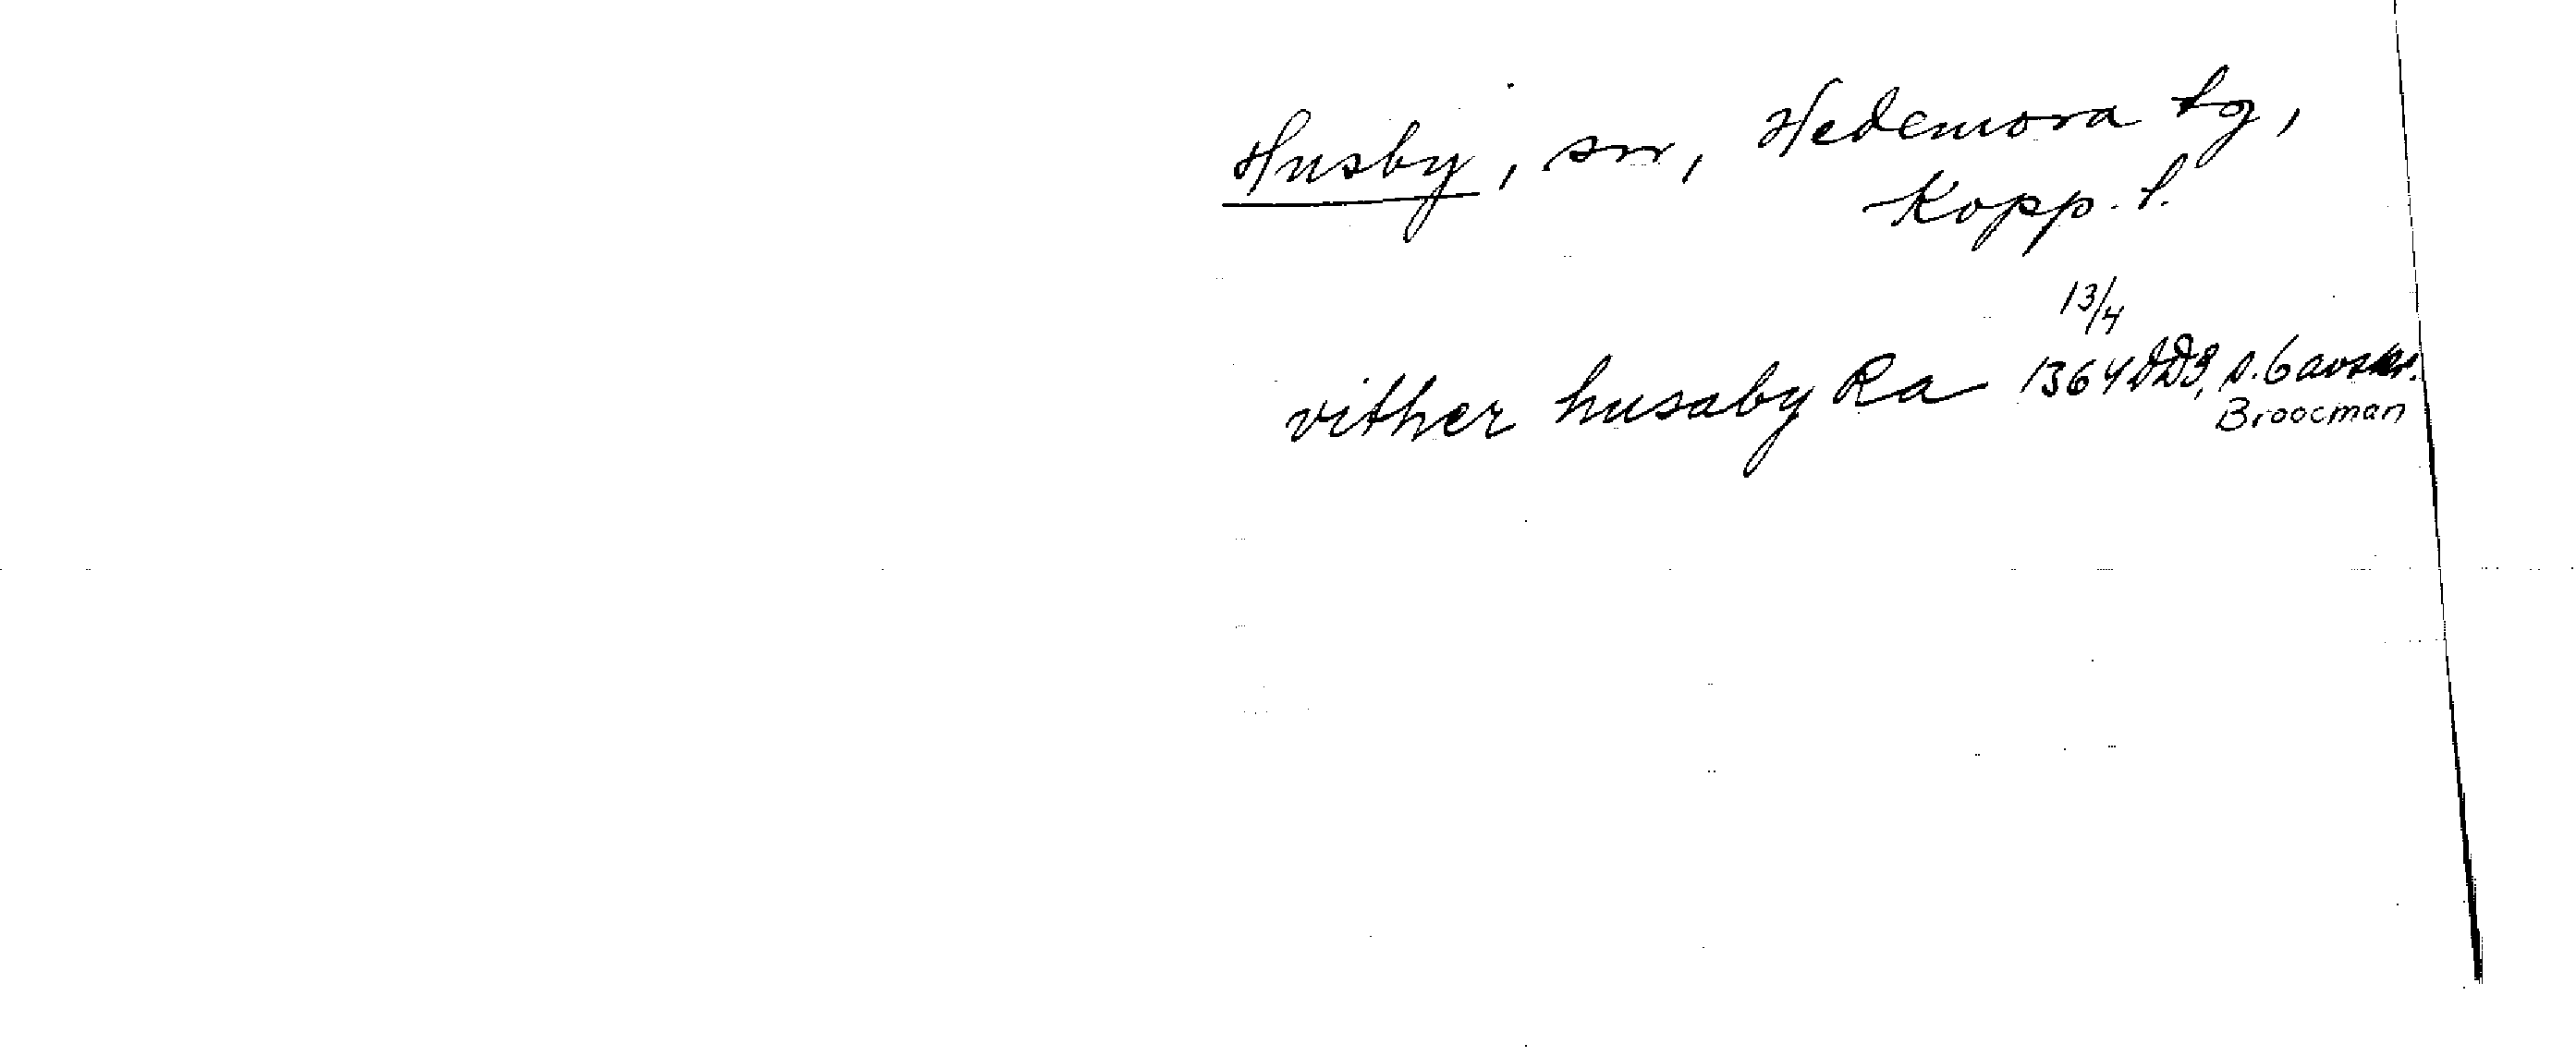 Husby, sn, Hedemora tg,
Kopp. l.
13/4
vither husaby Ra 1364 DD3, s. 6 avskr.
Broocman